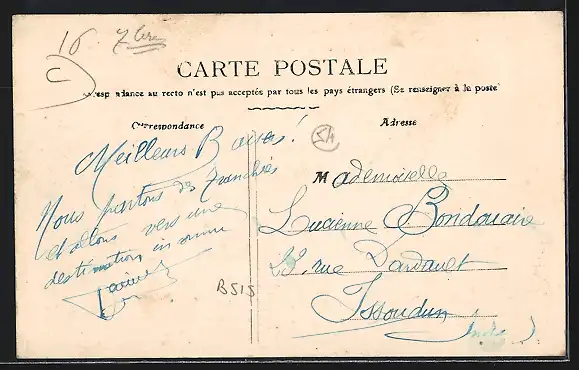 16 7bre
CARTE POSTALE
respondance au recto n'est pas acceptée par tous les pays étrangers (Se renseigner à la poste)
Correspondance
Adresse
Meilleurs Baisers!
Nous partons des Tranchées
et allons vers une
destination inconnue
54
Mademoiselle
Lucienne Bondouaire
rue Dardault
Issoudun
Indre
B515